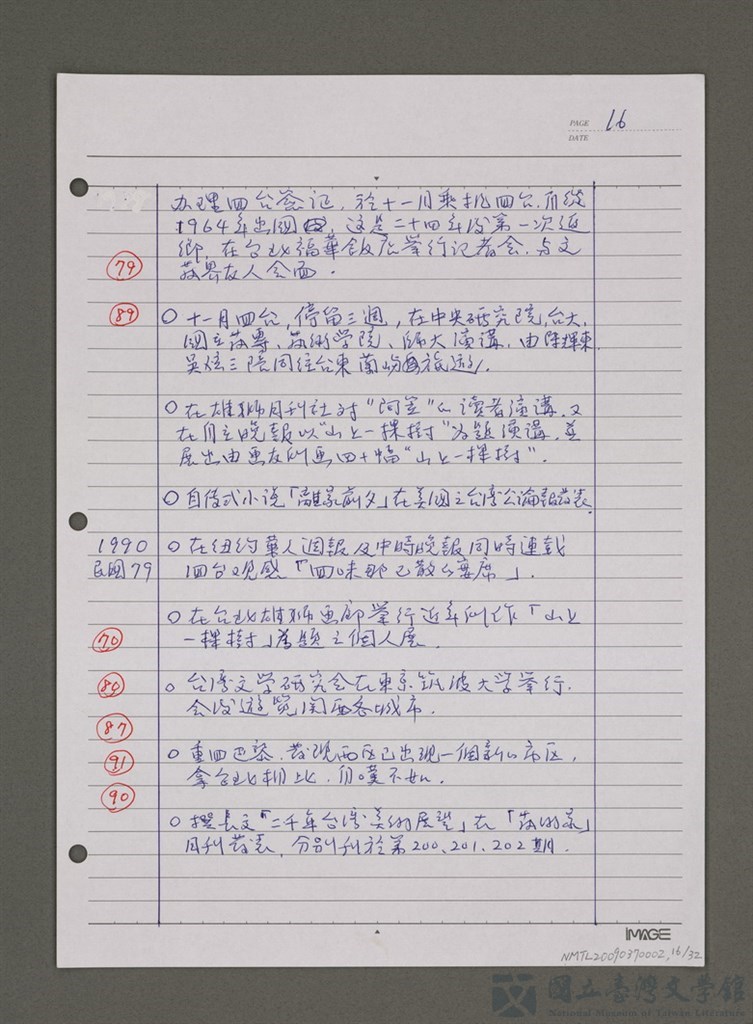 PAGE 16
DATE
办理回台簽证，於十一月乘机回台，自從
1964年出國，這是二十四年後第一次返
鄉，在台北福華飯店举行记者会，与文
79 藝界友人会面．
89 ○ 十一月回台，停留三週，在中央研究院，台大，
國立藝專、藝術学院、師大演講，由陳輝東
吳炫三陪同往台東蘭嶼旅遊．
○ 在雄獅月刊社对“阿笠”的读者演講，又
在自立晚報以“山上一棵樹”为题演講，並
展出由画友所画四十幅“山上一棵樹”．
○ 自傳式小说「離家前夕」在美國之台湾公論報發表
1990 ○ 在纽约華人週報及中時晚報同時連載
民國79 回台观感「回味那已散的宴席」．
○ 在台北雄獅画廊举行近年所作「山上
70 一棵樹」為题之個人展．
80 ○ 台湾文学研究会在東京筑波大学举行．
会後遊覽関西各城市．
87 ○ 重回巴黎，發现西区已出现一個新的市区，
91 拿台北相比，自嘆不如．
90 ○ 撰長文「二千年台湾美術展望」在「藝術家」
月刊發表，分别刊於第200、201、202期．
IMAGE
NMTL20090370002, 16/32
國立臺灣文學館
National Museum of Taiwan Literature